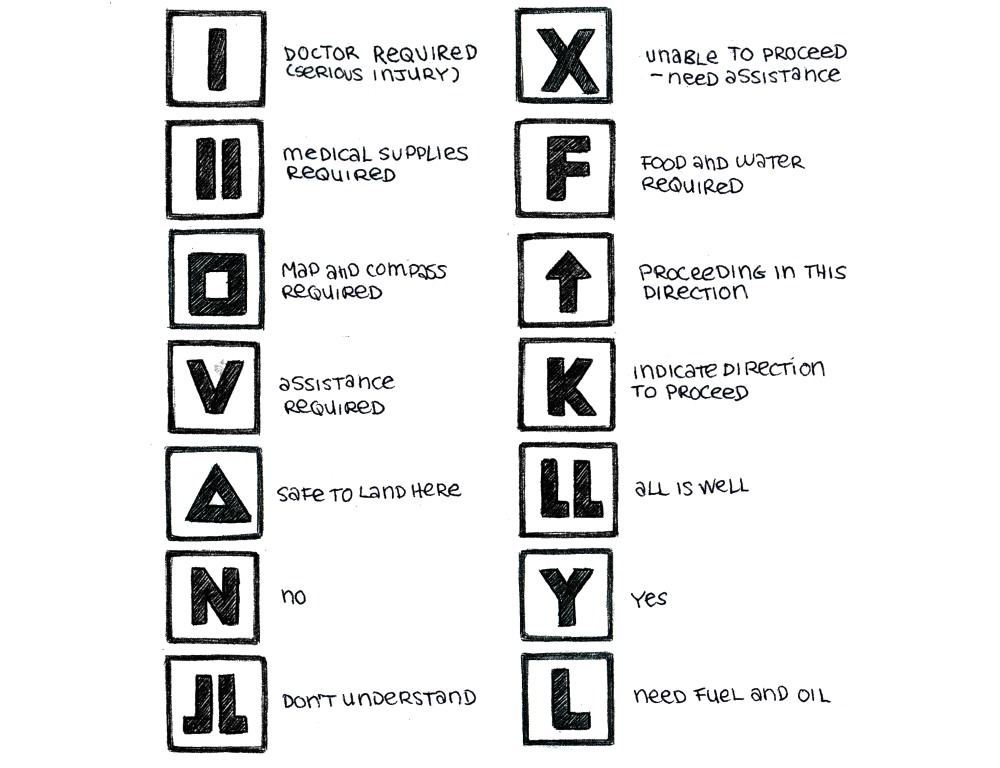 I
DOCTOR REQUIRED
(SERIOUS INJURY)
II
MEDICAL SUPPLIES
REQUIRED
MAP and COMPASS
REQUIRED
V
assistance
REQUIRED
Safe TO Land Here
N
no
JL
Don't understand
X
unable TO PROCEED
- need assistance
F
FOOD and water
REQUIRED
PROCEEDING IN THIS
DIRECTION
K
INDICATE DIRECTION
TO PROCEED
LL
all is well
Y
Yes
L
need Fuel and OIL